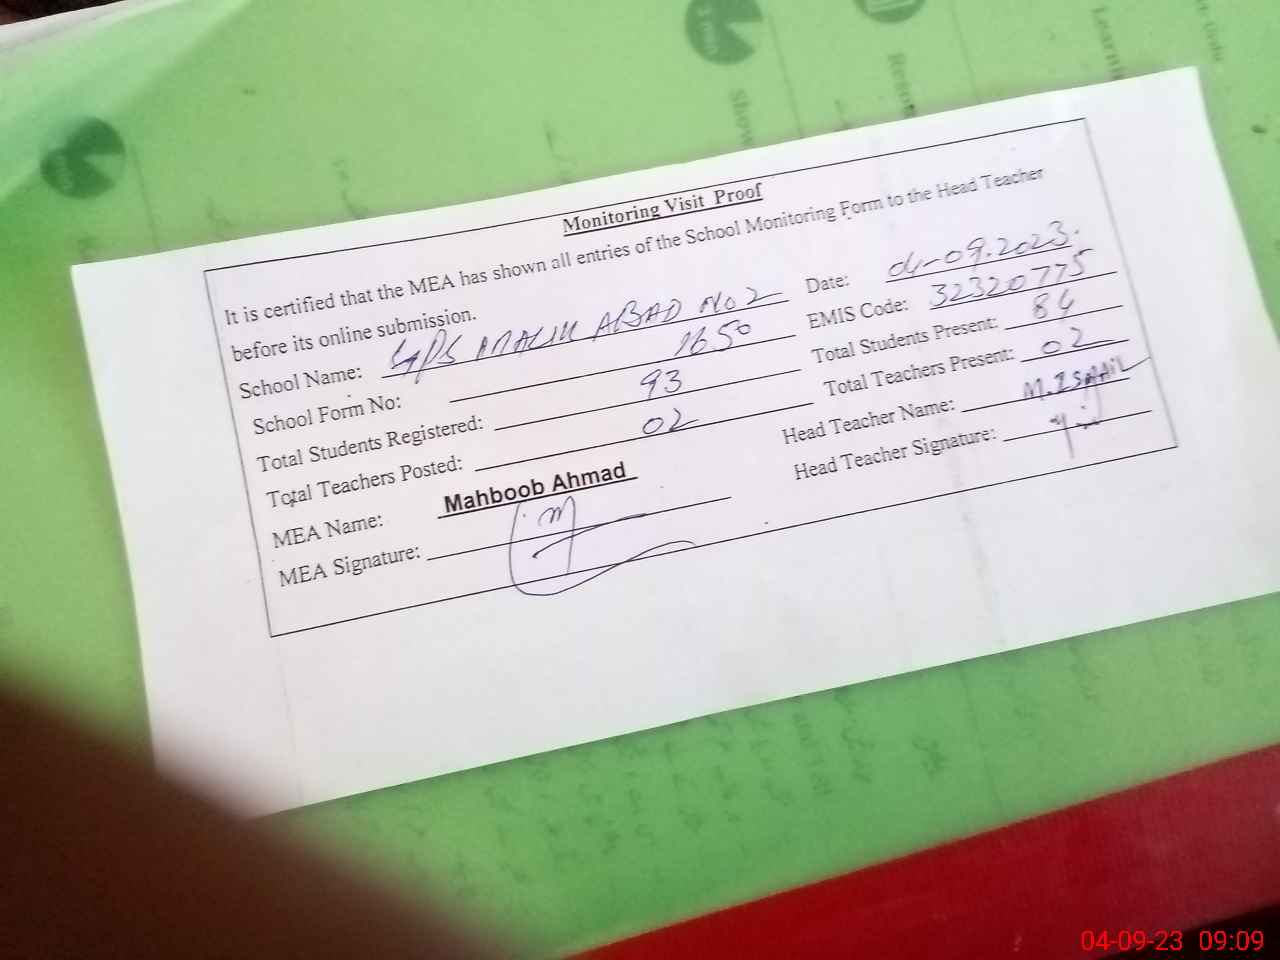 Monitoring Visit Proof
It is certified that the MEA has shown all entries of the School Monitoring Form to the Head Teacher
before its online submission.
Date: 04-09.2023.
School Name: GPS MALIK ABAD No 2
EMIS Code: 32320775
School Form No: 1650
Total Students Present: 84
Total Students Registered: 93
Total Teachers Present: 02
Total Teachers Posted: 02
Head Teacher Name: M.ISMAIL
MEA Name: Mahboob Ahmad
Head Teacher Signature:
MEA Signature:
Show
04-09-23 09:09